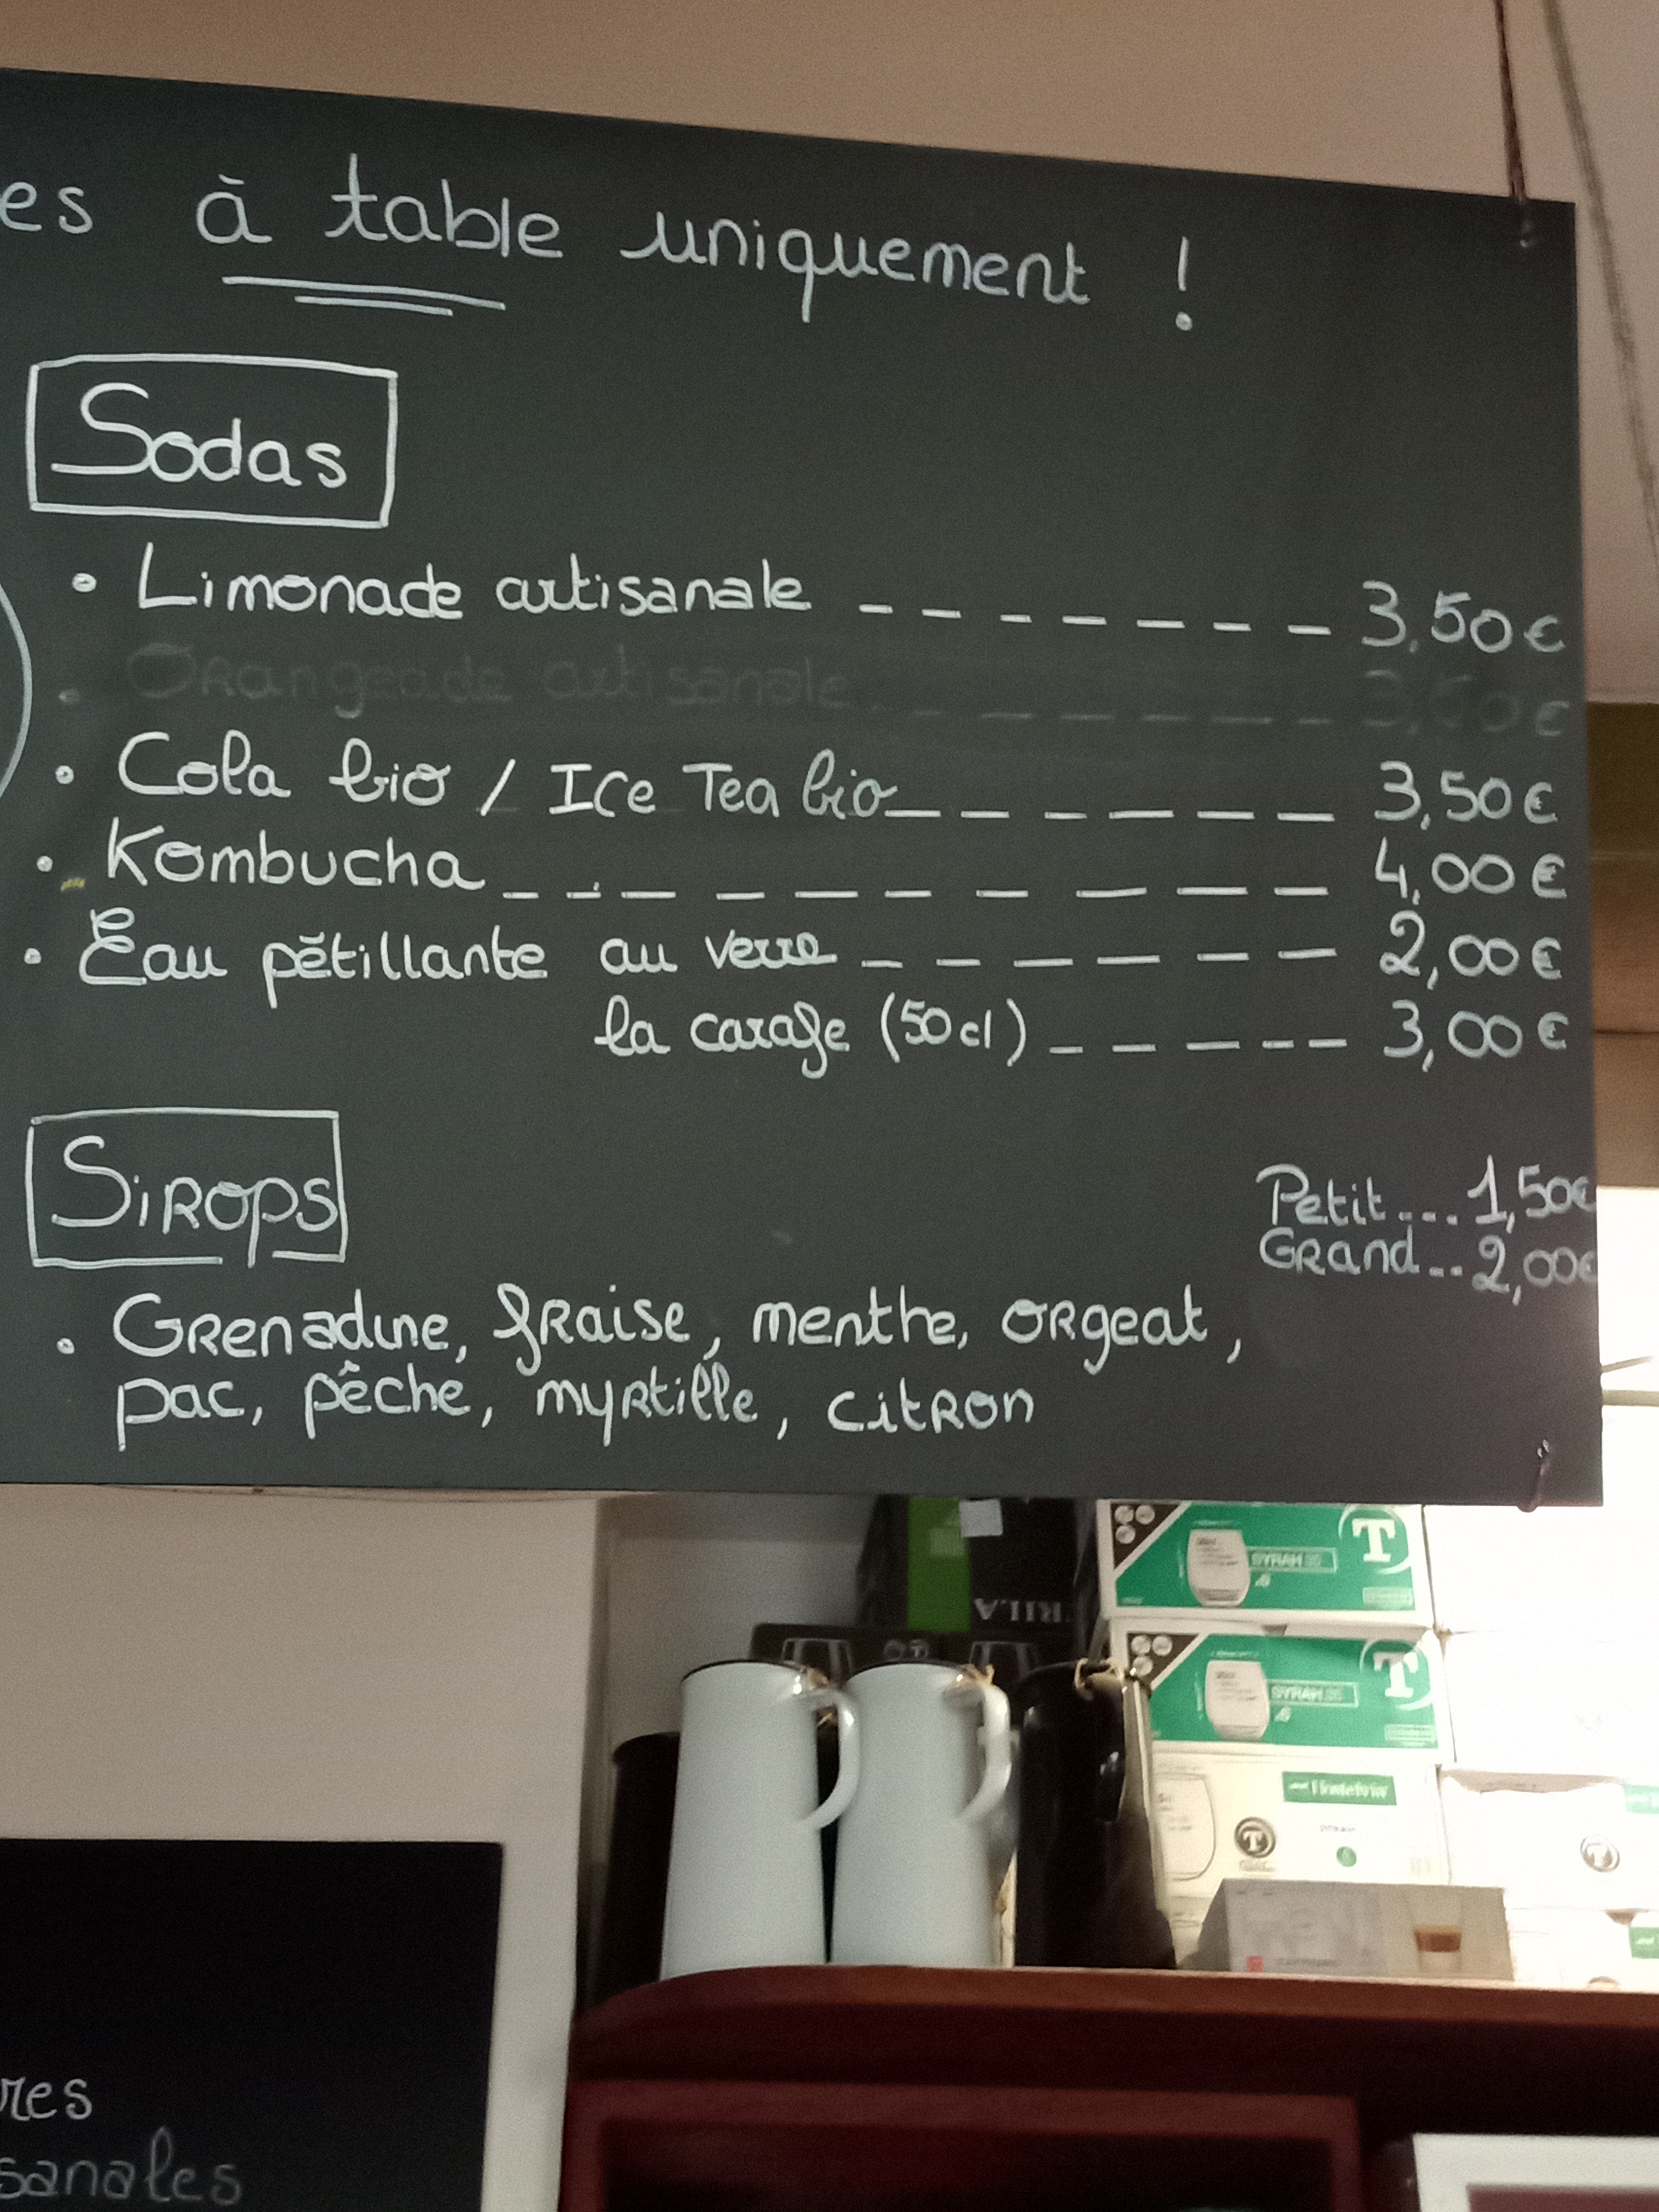 es à table uniquement !
Sodas
• Limonade artisanale _ _ _ _ _ _ _ 3,50€
• Orangeade artisanale _ _ _ _ _ _ _ 3,50€
• Cola bio / Ice Tea bio _ _ _ _ _ _ _ 3,50€
• Kombucha _ _ _ _ _ _ _ _ _ _ 4,00€
• Eau pétillante au verre _ _ _ _ _ _ _ 2,00€
la carafe (50cl) _ _ _ _ _ _ 3,00€
Sirops
Petit.... 1,50€
Grand... 2,00€
• Grenadine, fraise, menthe, orgeat,
pac, pêche, myrtille, citron
RILA
T
SYRAH
T
SYRAH
T
T
res
sanales